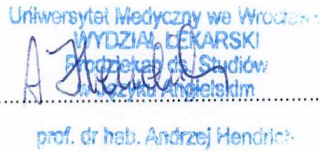 Uniwersytet Medyczny we Wrocławiu
WYDZIAŁ LEKARSKI
Prodziekan ds. Studiów
w Języku Angielskim
prof. dr hab. Andrzej Hendrich